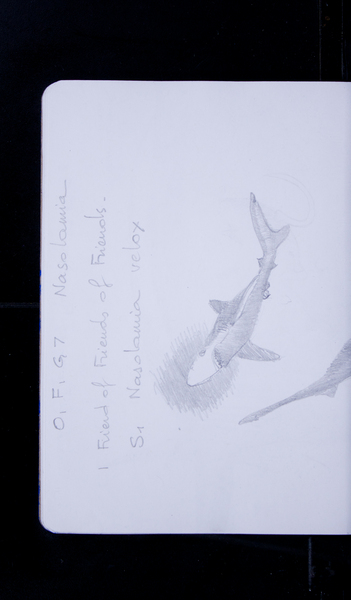 O, F, G7 Nasolamia
1 Friend of Friends of Friends.
S1 Nasolamia velox